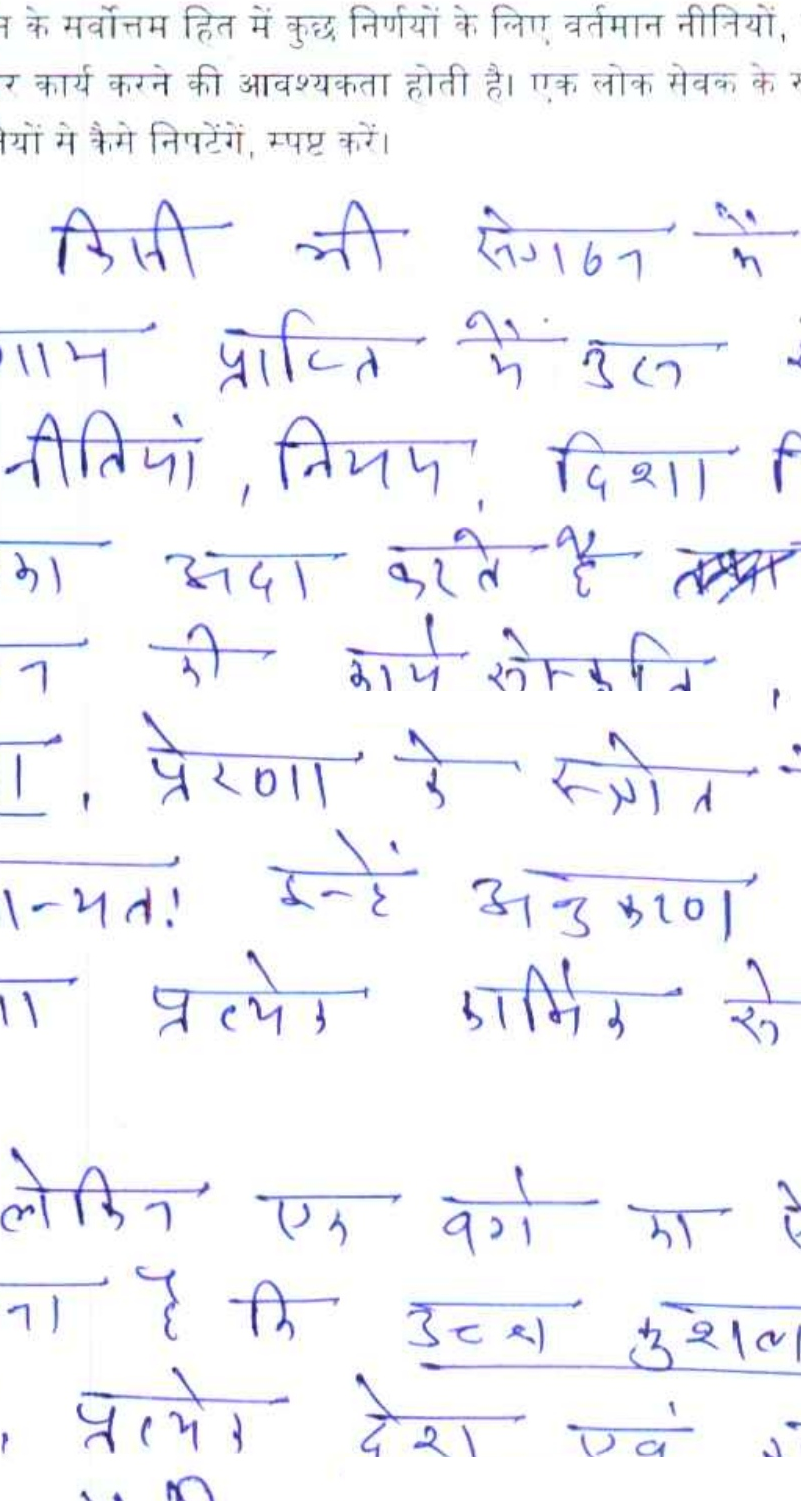 के सर्वोत्तम हित में कुछ निर्णयों के लिए वर्तमान नीतियों,
कार्य करने की आवश्यकता होती है। एक लोक सेवक के
से कैसे निपटेंगें, स्पष्ट करें।
किसी भी संगठन में
प्राप्ति में उस
नीतियां, नियम, दिशा
अदा करते है
की कार्य संस्कृति,
, प्रेरणा के स्त्रोत
इन्हें अनुकरण
प्रत्येक कार्मिक से
लेकिन एक वर्ग का
है कि उच्च कुशल
, प्रत्येक देश एवं